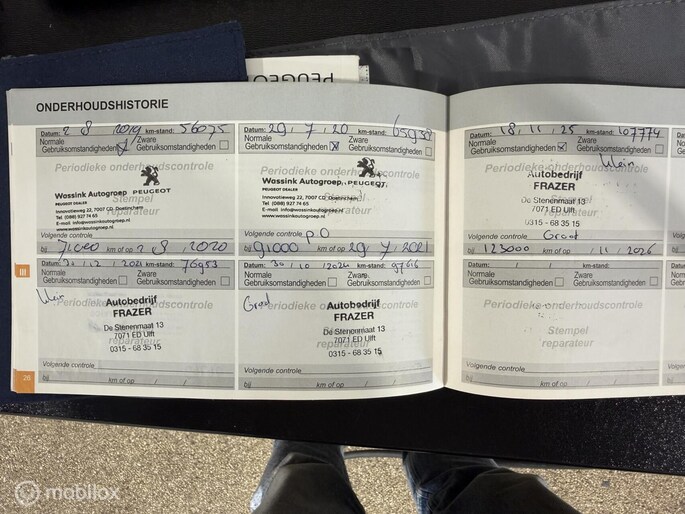 PEUGEO
ONDERHOUDSHISTORIE
Datum: 2 8 2019 km-stand: 56075
Normale Gebruiksomstandigheden Zware Gebruiksomstandigheden
Periodieke onderhoudscontrole
PEUGEOT
Wassink Autogroep
PEUGEOT DEALER
Innovatieweg 22, 7007 CD Doetinchem
Tel (088) 927 74 65
E-mail info@wassinkautogroep.nl
www.wassinkautogroep.nl
Stempel
reparateur
Volgende controle
bij 71.000 km of op 2 8 2020
Datum: 29, 7, 20 km-stand: 65938
Normale Gebruiksomstandigheden Zware Gebruiksomstandigheden
Periodieke onderhoudscontrole
Wassink Autogroep PEUGEOT
PEUGEOT DEALER
Innovatieweg 22, 7007 CD Doetinchem
Tel (088) 927 74 65
E-mail info@wassinkautogroep.nl
www.wassinkautogroep.nl
reparateur
Volgende controle P.O
bij 91000 km of op 29 7 2021
Datum: 18, 11, 25 km-stand: 107774
Normale Gebruiksomstandigheden Zware Gebruiksomstandigheden
Klein
Periodieke onderhoudscontrole
Autobedrijf
FRAZER
De Stenenmaat 13
7071 ED Ulft
0315 - 68 35 15
Volgende controle Groot
bij 123000 km of op / 11 / 2026
III
Datum: 30, 12, 2021 km-stand: 76953
Normale Gebruiksomstandigheden Zware Gebruiksomstandigheden
Klein
Periodieke onderhoudscontrole
Autobedrijf
FRAZER
De Stenenmaat 13
7071 ED Ulft
0315 - 68 35 15
reparateur
Volgende controle
bij km of op / /
Datum: 30, 10, 2024 km-stand: 97616
Normale Gebruiksomstandigheden Zware Gebruiksomstandigheden
Groot
Periodieke onderhoudscontrole
Autobedrijf
FRAZER
De Stenenmaat 13
7071 ED Ulft
0315 - 68 35 15
reparateur
Volgende controle
bij km of op / /
Datum: / / km-stand:
Normale Gebruiksomstandigheden Zware Gebruiksomstandigheden
Periodieke onderhoudscontrole
Stempel
reparateur
Volgende controle
bij km of op / /
26
mobilox